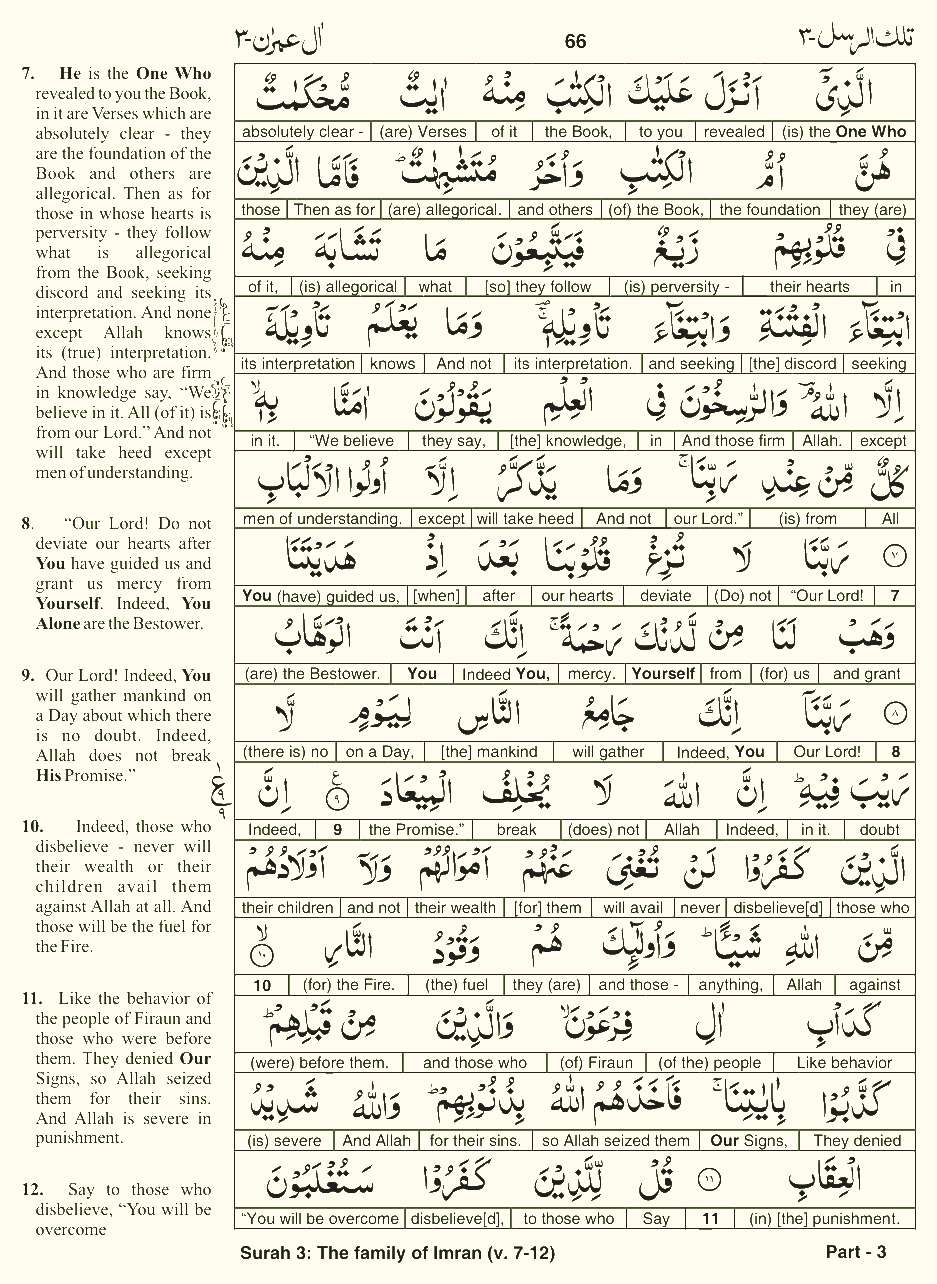 اٰل عمرٰن-٣
66
تلك الرسل-٣
7. He is the One Who
revealed to you the Book,
in it are Verses which are
absolutely clear - they
are the foundation of the
Book and others are
allegorical. Then as for
those in whose hearts is
perversity - they follow
what is allegorical
from the Book, seeking
discord and seeking its
interpretation. And none
except Allah knows
its (true) interpretation.
And those who are firm
in knowledge say, “We
believe in it. All (of it) is
from our Lord.” And not
will take heed except
men of understanding.
8. “Our Lord! Do not
deviate our hearts after
You have guided us and
grant us mercy from
Yourself. Indeed, You
Alone are the Bestower.
9. Our Lord! Indeed, You
will gather mankind on
a Day about which there
is no doubt. Indeed,
Allah does not break
His Promise.”
10. Indeed, those who
disbelieve - never will
their wealth or their
children avail them
against Allah at all. And
those will be the fuel for
the Fire.
11. Like the behavior of
the people of Firaun and
those who were before
them. They denied Our
Signs, so Allah seized
them for their sins.
And Allah is severe in
punishment.
12. Say to those who
disbelieve, “You will be
overcome
الَّذِیْۤ اَنْزَلَ عَلَیْكَ الْكِتٰبَ مِنْهُ اٰیٰتٌ مُّحْكَمٰتٌ
absolutely clear - | (are) Verses | of it | the Book, | to you | revealed | (is) the One Who
هُنَّ اُمُّ الْكِتٰبِ وَاُخَرُ مُتَشٰبِهٰتٌ ؕ فَاَمَّا الَّذِیْنَ
those | Then as for | (are) allegorical. | and others | (of) the Book, | the foundation | they (are)
فِیْ قُلُوْبِهِمْ زَیْغٌ فَیَتَّبِعُوْنَ مَا تَشَابَهَ مِنْهُ
of it, | (is) allegorical | what | [so] they follow | (is) perversity - | their hearts | in
ابْتِغَآءَ الْفِتْنَةِ وَابْتِغَآءَ تَاْوِیْلِهٖ ۚ وَمَا یَعْلَمُ تَاْوِیْلَهٗۤ
its interpretation | knows | And not | its interpretation. | and seeking | [the] discord | seeking
اِلَّا اللّٰهُ ؔۘ وَالرّٰسِخُوْنَ فِی الْعِلْمِ یَقُوْلُوْنَ اٰمَنَّا بِهٖ ۙ
in it. | “We believe | they say, | [the] knowledge, | in | And those firm | Allah. | except
كُلٌّ مِّنْ عِنْدِ رَبِّنَا ۚ وَمَا یَذَّكَّرُ اِلَّاۤ اُولُوا الْاَلْبَابِ
men of understanding. | except | will take heed | And not | our Lord.” | (is) from | All
۷ رَبَّنَا لَا تُزِغْ قُلُوْبَنَا بَعْدَ اِذْ هَدَیْتَنَا
You (have) guided us, | [when] | after | our hearts | deviate | (Do) not | “Our Lord! | 7
وَهَبْ لَنَا مِنْ لَّدُنْكَ رَحْمَةً ۚ اِنَّكَ اَنْتَ الْوَهَّابُ
(are) the Bestower. | You | Indeed You, | mercy. | Yourself | from | (for) us | and grant
۸ رَبَّنَاۤ اِنَّكَ جَامِعُ النَّاسِ لِیَوْمٍ لَّا
(there is) no | on a Day, | [the] mankind | will gather | Indeed, You | Our Lord! | 8
رَیْبَ فِیْهِ ؕ اِنَّ اللّٰهَ لَا یُخْلِفُ الْمِیْعَادَ ۹ ع اِنَّ
Indeed, | 9 | the Promise.” | break | (does) not | Allah | Indeed, | in it. | doubt
الَّذِیْنَ كَفَرُوْا لَنْ تُغْنِیَ عَنْهُمْ اَمْوَالُهُمْ وَلَاۤ اَوْلَادُهُمْ
their children | and not | their wealth | [for] them | will avail | never | disbelieve[d] | those who
مِّنَ اللّٰهِ شَیْـًٔا ؕ وَاُولٰٓئِكَ هُمْ وَقُوْدُ النَّارِ ۱۰ ۙ
10 | (for) the Fire. | (the) fuel | they (are) | and those - | anything, | Allah | against
كَدَاْبِ اٰلِ فِرْعَوْنَ ۙ وَالَّذِیْنَ مِنْ قَبْلِهِمْ ؕ
(were) before them. | and those who | (of) Firaun | (of the) people | Like behavior
كَذَّبُوْا بِاٰیٰتِنَا ۚ فَاَخَذَهُمُ اللّٰهُ بِذُنُوْبِهِمْ ؕ وَاللّٰهُ شَدِیْدُ
(is) severe | And Allah | for their sins. | so Allah seized them | Our Signs, | They denied
الْعِقَابِ ۱۱ قُلْ لِّلَّذِیْنَ كَفَرُوْا سَتُغْلَبُوْنَ
“You will be overcome | disbelieve[d], | to those who | Say | 11 | (in) [the] punishment.
Surah 3: The family of Imran (v. 7-12)
Part - 3